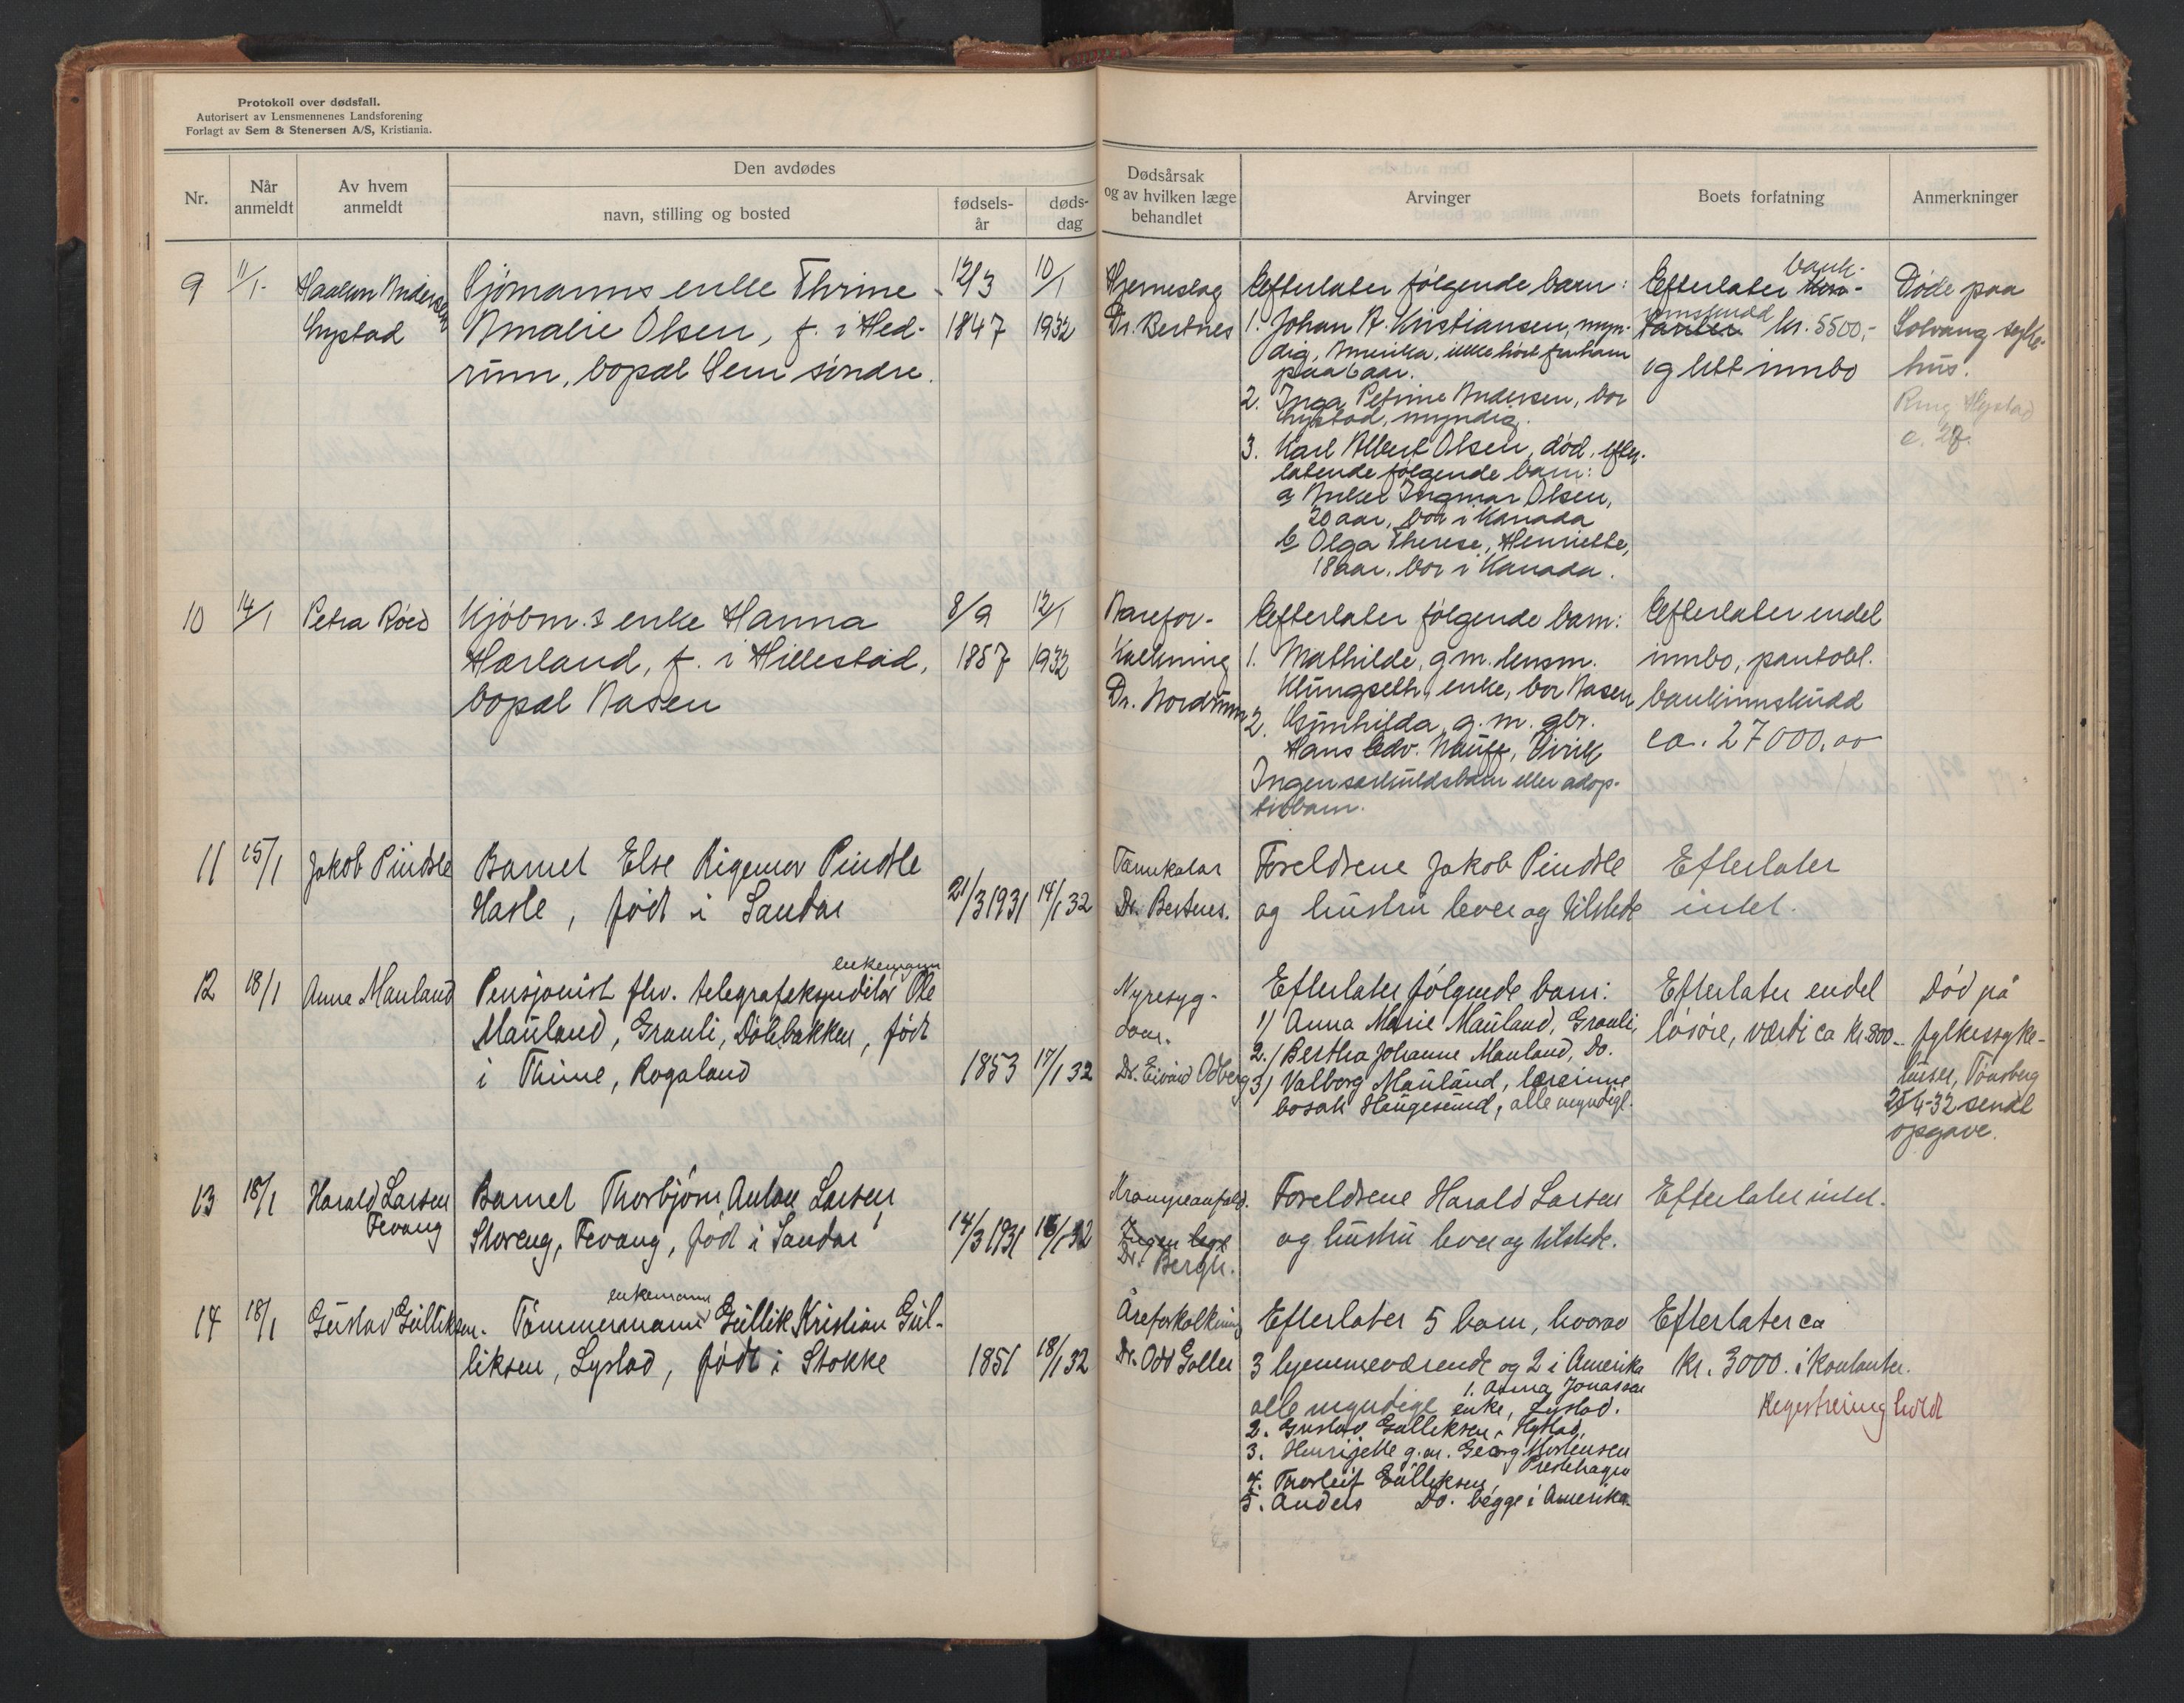 Protokoll over dødsfall.
Autorisert av Lensmennenes Landsforening
Forlagt av Sem & Stenersen A/S, Kristiania.
Nr.
Når anmeldt
Av hvem anmeldt
Den avdødes
navn, stilling og bosted
fødsels-år
døds-dag
Dødsårsak og av hvilken læge behandlet
Arvinger
Boets forfatning
Anmerkninger
9
11/1-
Haakon Andersen
Lystad
Sjømanns enke Thrine
Amalie Olsen, f. i Hed-
rum, bopæl Sem søndre.
12/3
1847
10/1
1932
Hjerneslag
Dr. Bertnes
Efterlater følgende barn:
1. Johan A. Kristiansen, myn-
dig, Amerika, ikke hørt fra ham
paa 6 aar.
2. Inga Petrine Andersen, bor
Lystad, myndig.
3. Karl Albert Olsen, død, efter-
latende følgende barn:
a Anker Ingmar Olsen,
20 aar, bor i Kanada
b Olga Therese, Henriette,
18 aar, bor i Kanada.
Efterlater bank-
innskudd kr. 5500,-
og litt innbo
Døde paa
Solvang syke-
hus.
Ring Hystad
10
14/1
Petra Röed
Kjöbm.s enke Hanna
Hærland, f. i Hillestad,
bopæl Nasen
8/9
1857
12/1
1932
Aarefor-
kalkning
Dr. Nordrum
Efterlater følgende barn:
1. Mathilde, g.m. lensm.
Klungseth, enke, bor Nasen
2. Gunhilda, g.m. gbr.
Hans Edv. Nauff, Virik
Ingen særkuldsbarn eller adop-
tivbarn.
Efterlater endel
innbo, pantobl.
bankinnskudd
ca. 27000,00
11
15/1
Jakob Pindsle
Barnet Else Rigemor Pindsle
Hasle, født i Sandar
21/3 1931
14/1 32
Tarmkatar
Dr. Bertnes.
Foreldrene Jakob Pindsle
og hustru lever og tilstede
Efterlater
intet.
12
18/1
Anna Mauland
enkemann
Pensjonist fhv. telegrafekspeditør Ole
Mauland, Granli, Dølebakken, født
i Thime, Rogaland
1853
17/1 32
Nyresyg-
dom.
Dr. Eivind Odberg
Efterlater følgende barn:
1) Anna Marie Mauland, Granli,
2.) Bertha Johanne Mauland, Do.
3) Valborg Mauland, lærerinne
bosatt Haugesund, alle myndige.
Efterlater endel
løsøre, værdi ca kr. 800-
Død på
fylkessyke-
huset, Tönsberg
25/4-32 sendt
opgave.
13
18/1
Harald Larsen
Fevang
Barnet Thorbjörn Anton Larsen,
Storeng, Fevang, född i Sandar
14/3 1931
16/1 32
Krampeanfald.
Ingen lege
Dr. Bergh.
Foreldrene Harald Larsen
og hustru lever og tilstede.
Efterlater intet.
14
18/1
Gustav Gulliksen.
enkemann
Tömmermann Gullik Kristian Gul-
liksen, Lystad, född i Stokke
1851
18/1 32
Åreforkalkning
Dr. Odd Galler
Efterlater 5 barn, hvorav
3 hjemmeværende og 2 i Amerika
alle myndige 1. Anna Jonassen
enke, Lystad.
2. Gustav Gulliksen, Hystad,
3. Henrijette g.m. Georg Mortensen
Prestehagen
4. Thorleif Gulliksen,
5. Anders Do. begge i Amerika.
Efterlater ca
kr. 3000. i kontanter.
Registrering holdt